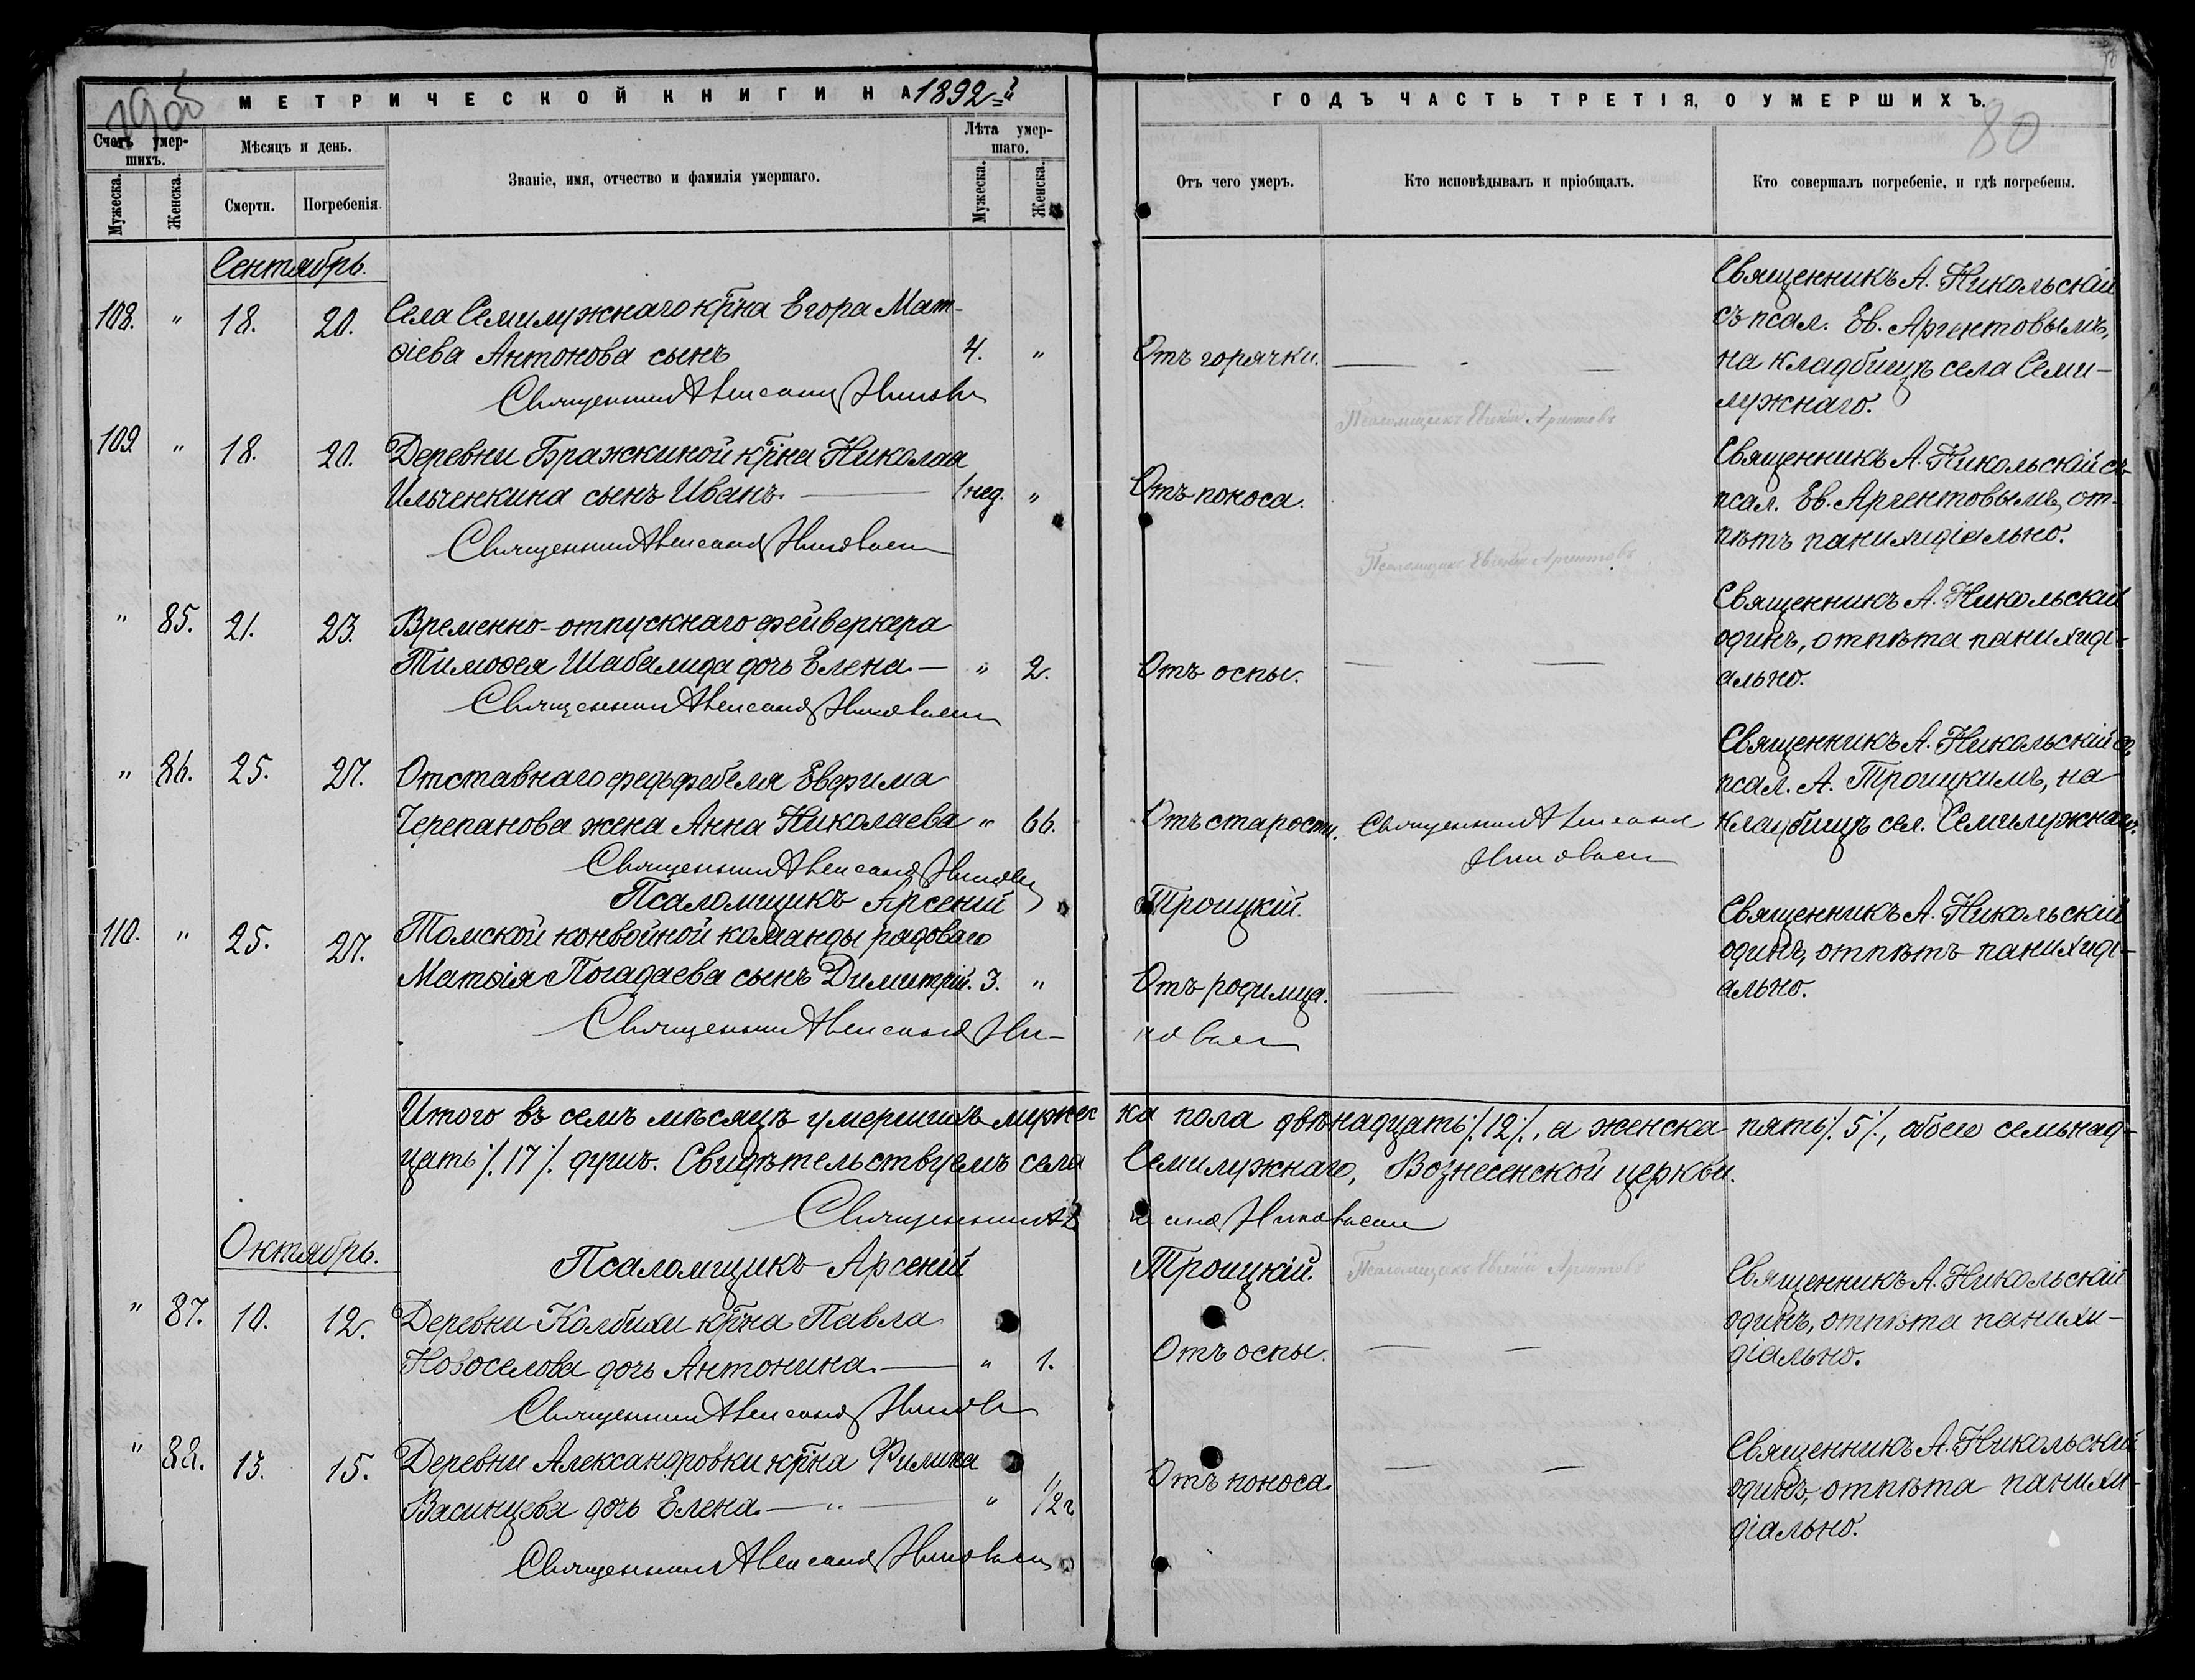 МЕТРИЧЕСКОЙ КНИГИ НА 1892-й
ГОДЪ ЧАСТЬ ТРЕТІЯ, О УМЕРШИХЪ.
80
Счетъ умер-
шихъ.
Мѣсяцъ и день.
Званіе, имя, отчество и фамилія умершаго.
Лѣта умер-
шаго.
Мужеска.
Женска.
Смерти.
Погребенія.
Мужеска.
Женска.
Отъ чего умеръ.
Кто исповѣдывалъ и пріобщалъ.
Кто совершалъ погребеніе, и гдѣ погребены.
Сентябрь.
108. " 18. 20. Села Семилужнаго кр̃на Егора Мат-
ѳіева Антонова сынъ 4. " Отъ горячки.
Священникъ А. Никольскій
съ псал. Ев. Аргентовымъ,
на кладбищѣ села Семи-
лужнаго.
Священникъ Александръ
Псаломщикъ Евгеній Аргентовъ
109. " 18. 20. Деревни Бражкиной кр̃на Николая
Ильченкина сынъ Иванъ. 1 нед. " Отъ поноса.
Священникъ А. Никольскій съ
псал. Ев. Аргентовымъ, от-
пѣтъ панихидіально.
Священникъ Александръ Никольскій
Псаломщикъ Евгеній Аргентовъ
" 85. 21. 23. Временно-отпускнаго фейверкера
Тимоѳея Шабалида дочь Елена. " 2. Отъ оспы.
Священникъ А. Никольскій
одинъ, отпѣта панихиді-
ально.
Священникъ Александръ Никольскій
" 86. 25. 27. Отставнаго фельдфебеля Евфима
Черепанова жена Анна Николаева " 66. Отъ старости. Священникъ Александръ
Никольскій
Священникъ А. Никольскій съ
псал. А. Троицкимъ, на
кладбищѣ сел. Семилужнаго.
Священникъ Александръ
Псаломщикъ Арсеній Троицкій.
110. " 25. 27. Томской конвойной команды рядоваго
Матѳія Погадаева сынъ Димитрій. 3. " Отъ родимца.
Священникъ А. Никольскій
одинъ, отпѣтъ панихиді-
ально.
Священникъ Александръ Ни-
кольскій
Итого въ семъ мѣсяцѣ умершихъ мужес ка пола двѣнадцать ⁒ 12 ⁒, а женска пять ⁒ 5 ⁒, обоего семьнад-
цать ⁒ 17 ⁒ душъ. Свидѣтельствуемъ села Семилужнаго, Вознесенской церкви.
Священникъ Александръ Никольскій
Псаломщикъ Арсеній Троицкій. Псаломщикъ Евгеній Аргентовъ
Октябрь.
" 87. 10. 12. Деревни Колбихи кр̃на Павла
Новоселова дочь Антонина. " 1. Отъ оспы.
Священникъ А. Никольскій
одинъ, отпѣта панихи-
діально.
Священникъ Александръ
" 88. 13. 15. Деревни Александровки кр̃на Филипа
Васинцева дочь Елена. " 1/2 г. Отъ поноса.
Священникъ А. Никольскій
одинъ, отпѣта панихи-
діально.
Священникъ Александръ Никольскій